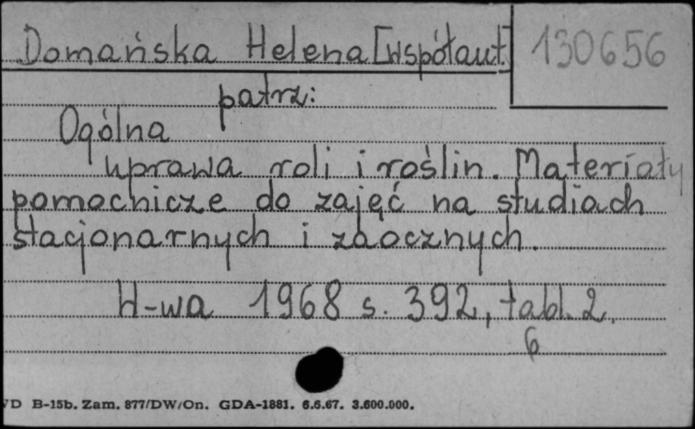 Domańska Helena [współaut]
130656
patrz:
Ogólna
uprawa roli i roślin. Materiały
pomocnicze do zajęć na studiach
stacjonarnych i zaocznych.
W-wa 1968 s. 392, tabl. 2.
6
WD B-15b. Zam. 877/DW/On. GDA-1881. 6.6.67. 3.600.000.